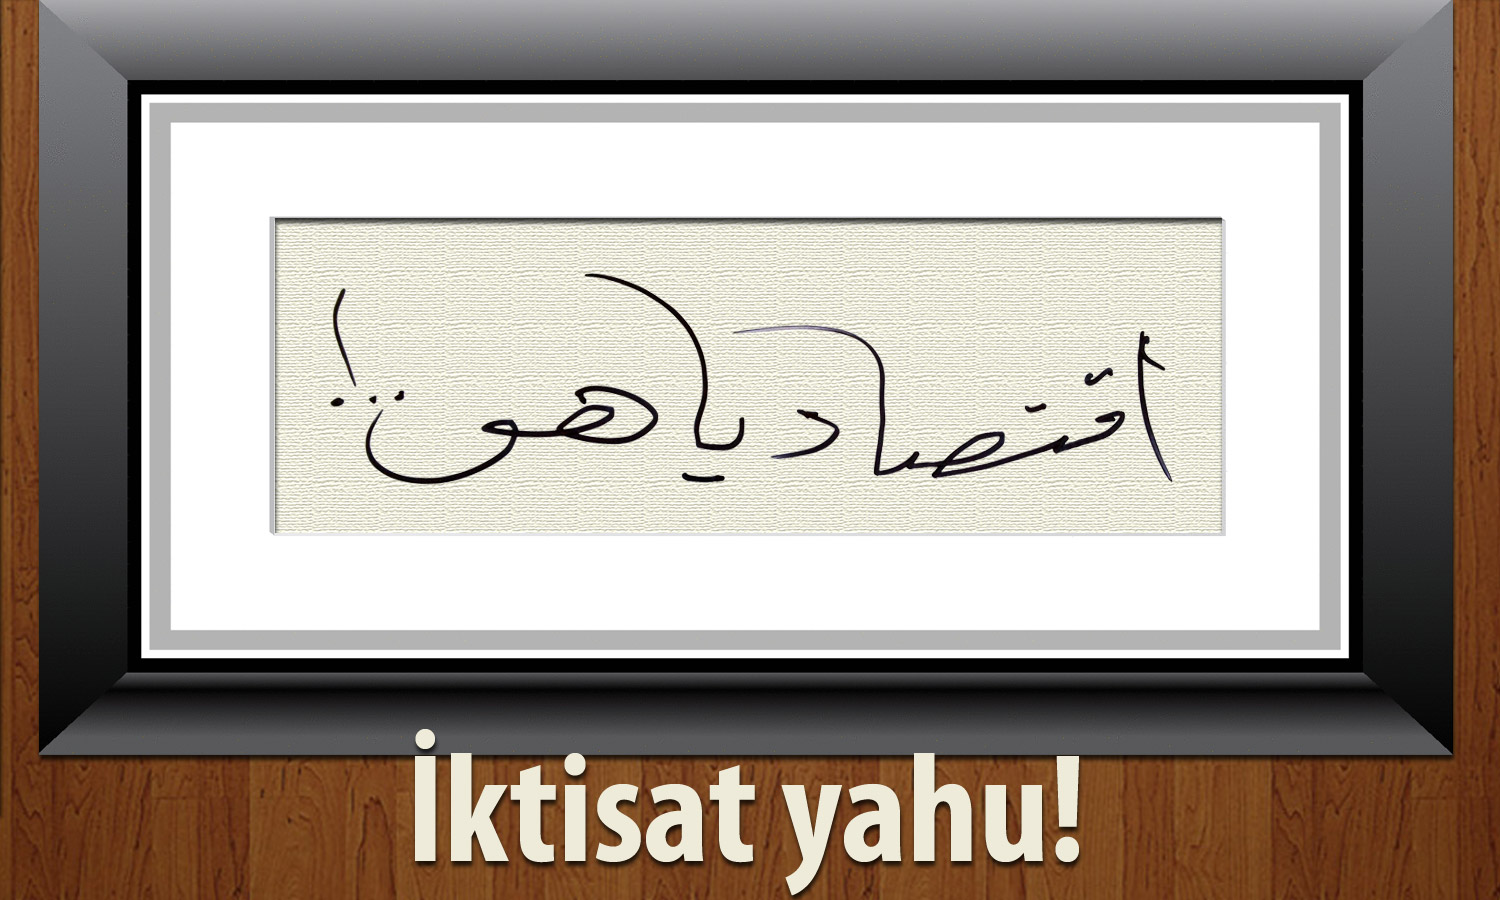 اقتصاد یاهو..!
İktisat yahu!